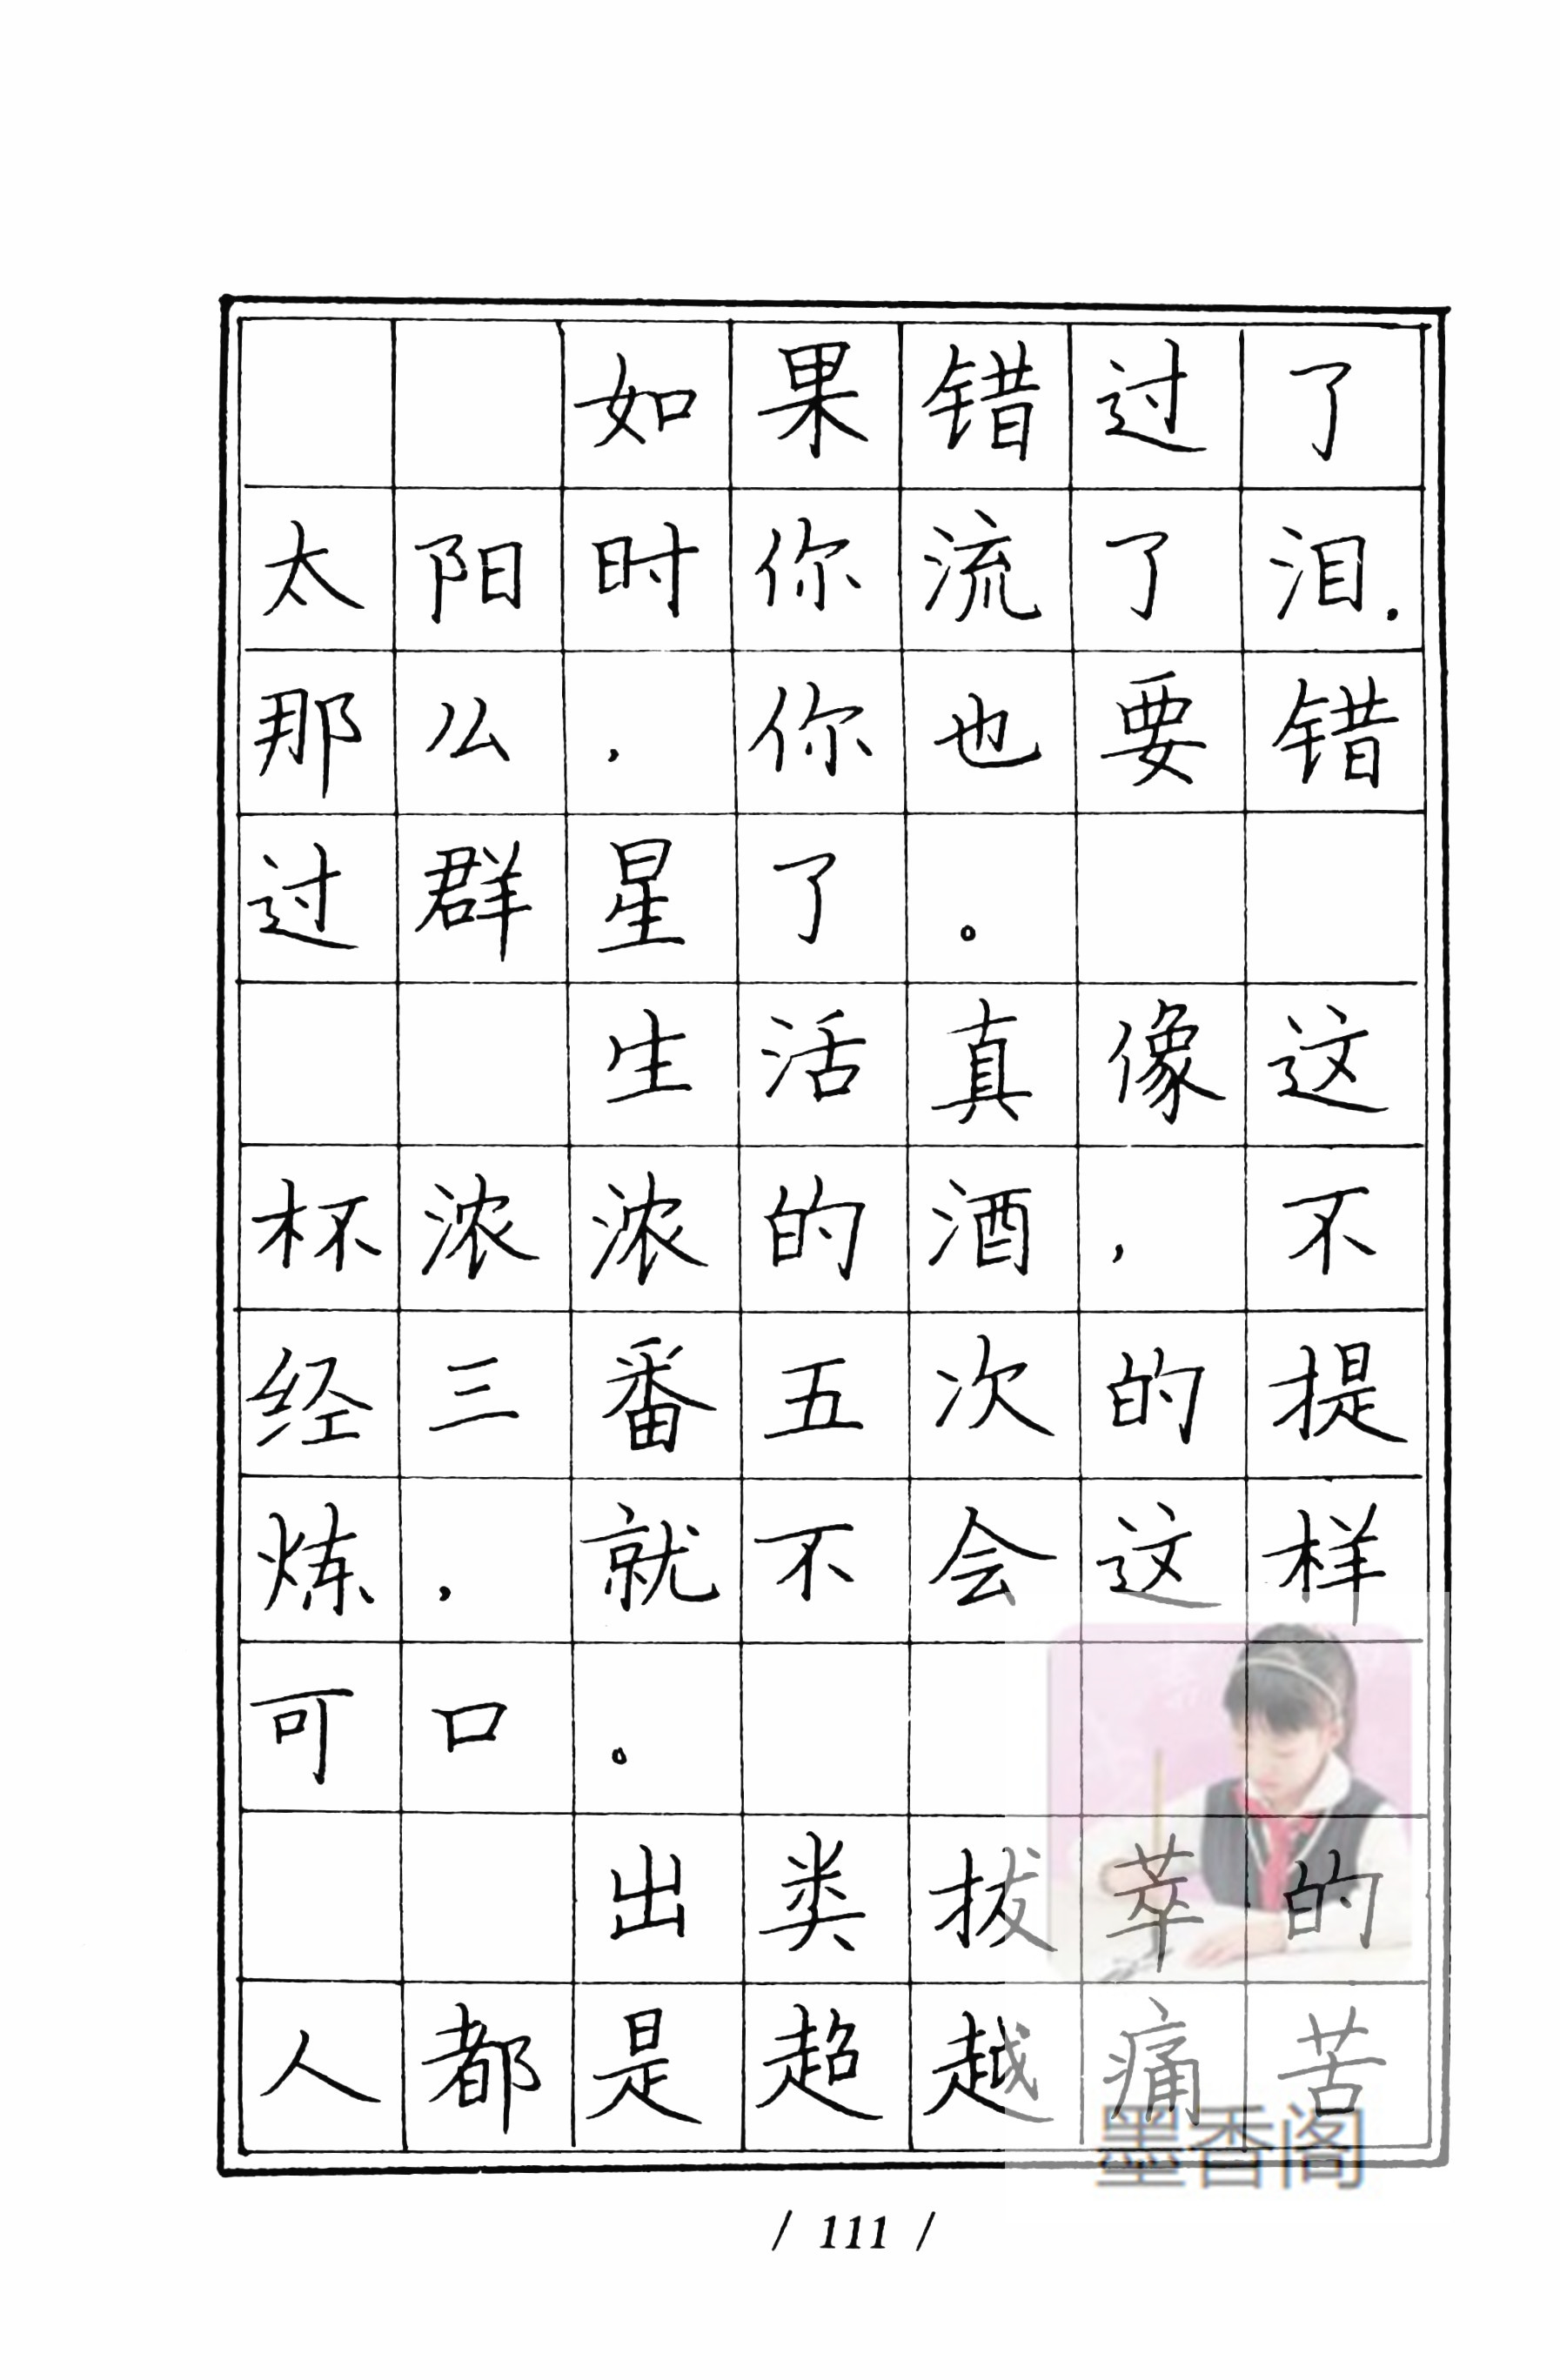 如果错过了
太阳时你流了泪.
那么，你也要错
过群星了。
生活真像这
杯浓浓的酒，不
经三番五次的提
炼，就不会这样
可口。
出类拔萃的
人都是超越痛苦
墨香阁
/ 111 /